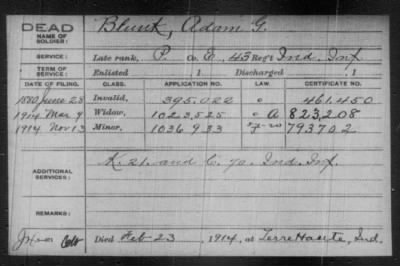 DEAD
NAME OF SOLDIER: Blunk, Adam G.
SERVICE: Late rank, P. Co. E, 43 Reg't Ind. Inf.
TERM OF SERVICE: Enlisted , 1 Discharged , 1
DATE OF FILING. CLASS. APPLICATION NO. LAW. CERTIFICATE NO.
1880 June 28 Invalid, 395.022 461.450
1914 Mar 9 Widow, 1023,525 A 823,208
1914 Nov 13 Minor, 1036933 793702
ADDITIONAL SERVICES: K. 21. and C. 70. Ind. Inf.
REMARKS:
Died Feb 23, 1914, at Terre Haute, Ind.